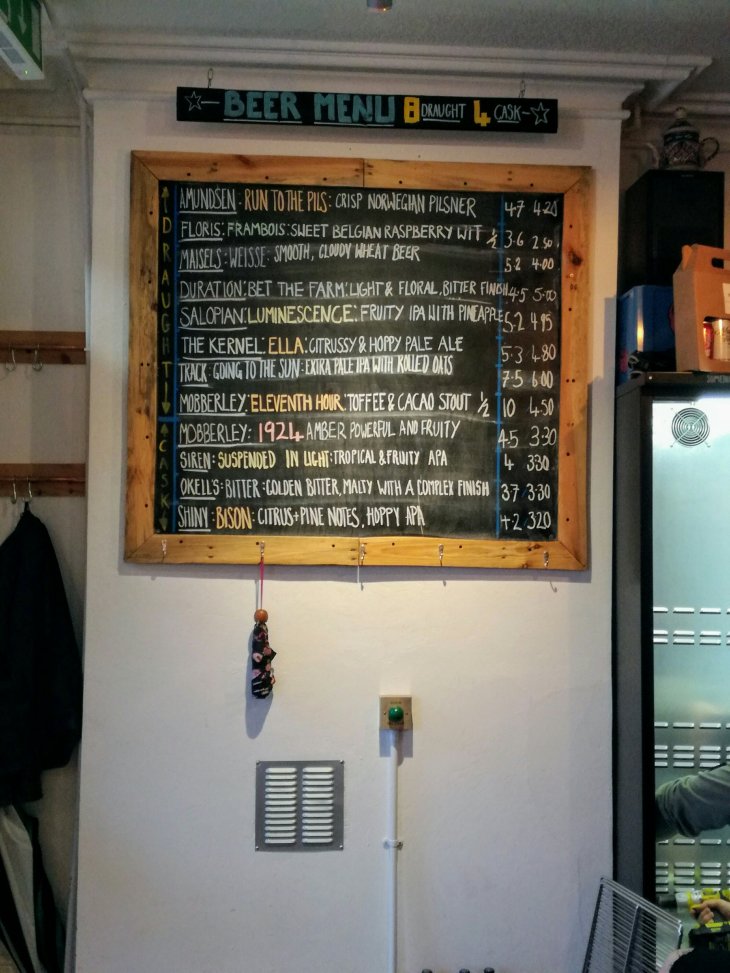 BEER MENU 8 DRAUGHT 4 CASK
DRAUGHT
AMUNDSEN: RUN TO THE PILS: CRISP NORWEGIAN PILSNER 4.7 4.20
FLORIS: FRAMBOIS: SWEET BELGIAN RASPBERRY WIT ½ 3.6 2.50
MAISELS: WEISSE: SMOOTH, CLOUDY WHEAT BEER 5.2 4.00
DURATION: BET THE FARM: LIGHT & FLORAL, BITTER FINISH 4.5 5.00
SALOPIAN: LUMINESCENCE: FRUITY IPA WITH PINEAPPLE 5.2 4.95
THE KERNEL: ELLA: CITRUSSY & HOPPY PALE ALE 5.3 4.80
TRACK: GOING TO THE SUN: EXTRA PALE IPA WITH ROLLED OATS 7.5 6.00
MOBBERLEY: ELEVENTH HOUR: TOFFEE & CACAO STOUT ½ 10 4.50
CASK
MOBBERLEY: 1924 AMBER POWERFUL AND FRUITY 4.5 3.30
SIREN: SUSPENDED IN LIGHT: TROPICAL & FRUITY APA 4 3.30
OKELL'S: BITTER: GOLDEN BITTER, MALTY WITH A COMPLEX FINISH 3.7 3.30
SHINY: BISON: CITRUS + PINE NOTES, HOPPY APA 4.2 3.20